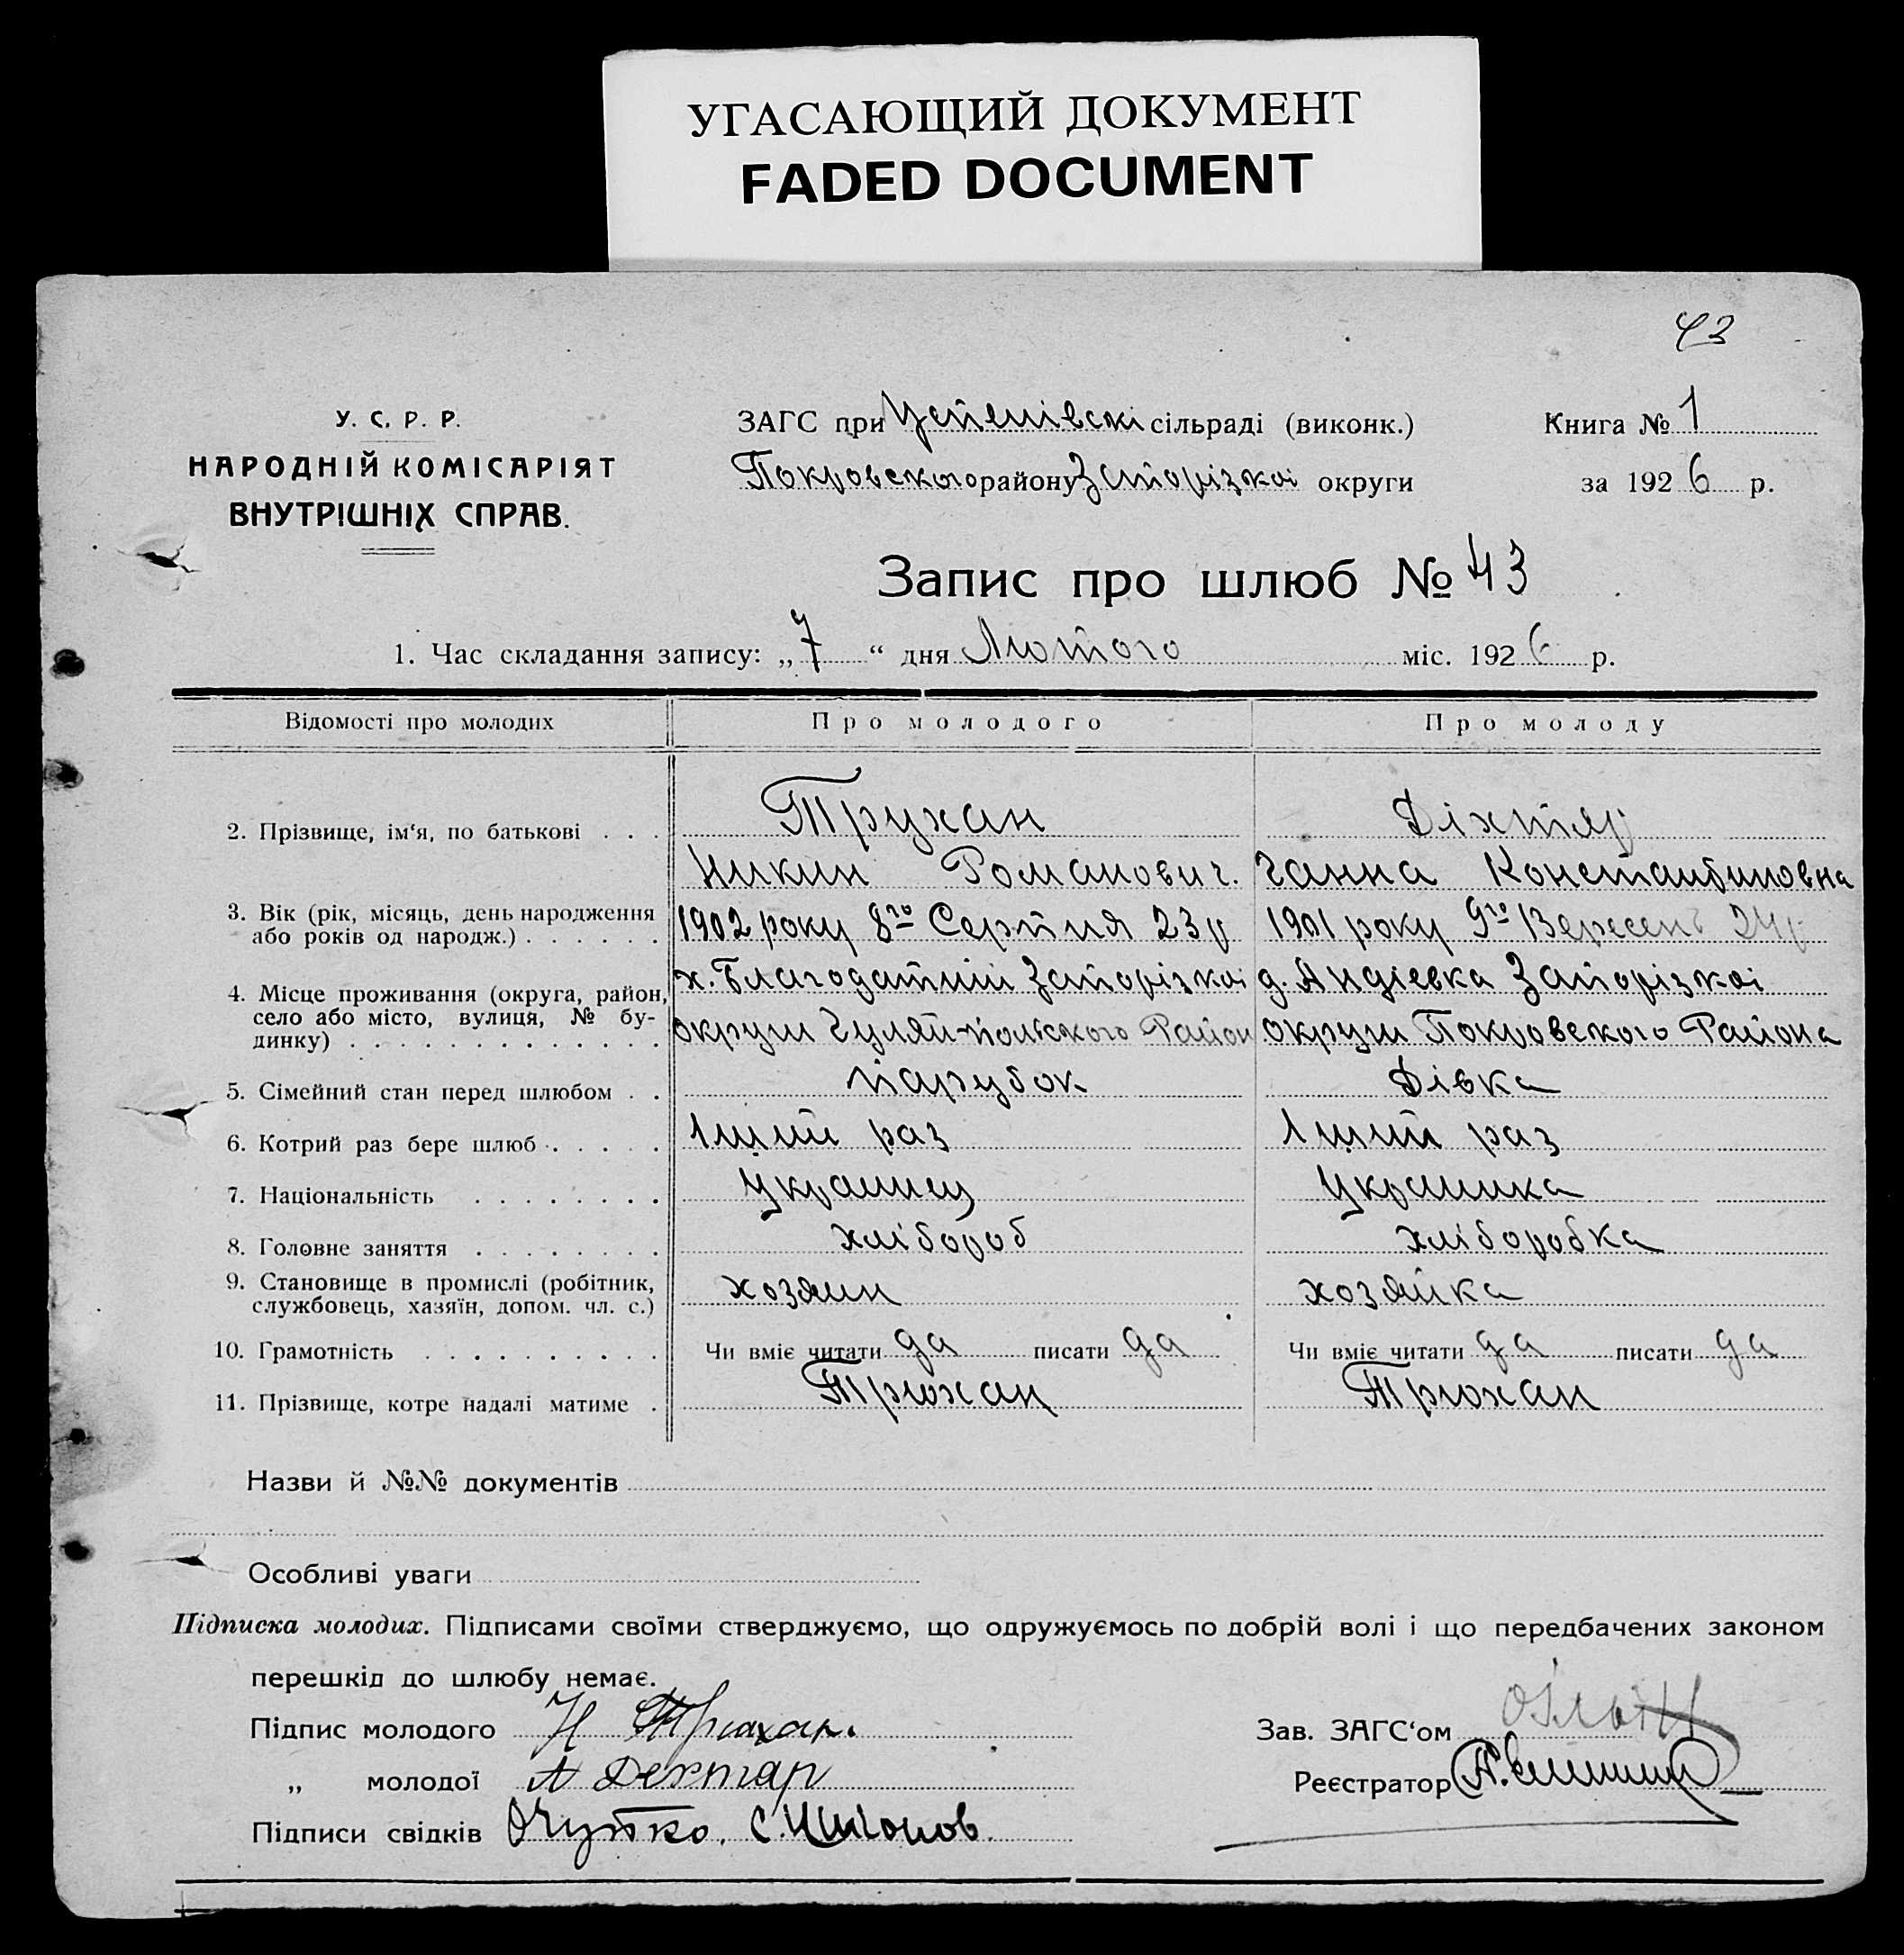 УГАСАЮЩИЙ ДОКУМЕНТ
FADED DOCUMENT
43
У. С. Р. Р.
НАРОДНІЙ КОМІСАРІЯТ
ВНУТРІШНІХ СПРАВ.
ЗАГС при Успенівскі сільраді (виконк.)
Покровского району Запорізкоі округи
Книга № 1
за 1926 р.
Запис про шлюб № 43
1. Час складання запису: „7“ дня Лютого міс. 1926 р.
Відомості про молодих
Про молодого
Про молоду
2. Прізвище, ім‘я, по батькові . . .
Трухан
Никин Романович.
Діхтяр
Ганна Константиновна
3. Вік (рік, місяць, день народження
або років од народж.) . . . . . .
1902 року 8го Серпня 23 р
1901 року 9го Вересень 24 р
4. Місце проживання (округа, район,
село або місто, вулиця, № бу-
динку) . . . . . . . . . . . . .
х. Благодатний Запорізкоі
округи Гуляй-польского Район
д. Андіевка Запорізкоі
округи Покровского Района
5. Сімейний стан перед шлюбом . .
парубок
Дівка
6. Котрий раз бере шлюб . . . . .
1ший раз
1ший раз
7. Національність . . . . . . . .
Украинец
Украинка
8. Головне заняття . . . . . . . .
хлібороб
хліборобка
9. Становище в промислі (робітник,
службовець, хазяїн, допом. чл. с.)
хозяин
хозяйка
10. Грамотність . . . . . . . . . .
Чи вміє читати да писати да
Чи вміє читати да писати да
11. Прізвище, котре надалі матиме .
Трюхан
Трюхан
Назви й №№ документів
Особливі уваги
Підписка молодих. Підписами своїми стверджуємо, що одружуємось по добрій волі і що передбачених законом
перешкід до шлюбу немає.
Підпис молодого Н Трюхан.
„ молодої А Дехтяр
Підписи свідків
Зав. ЗАГС‘ом
Реєстратор